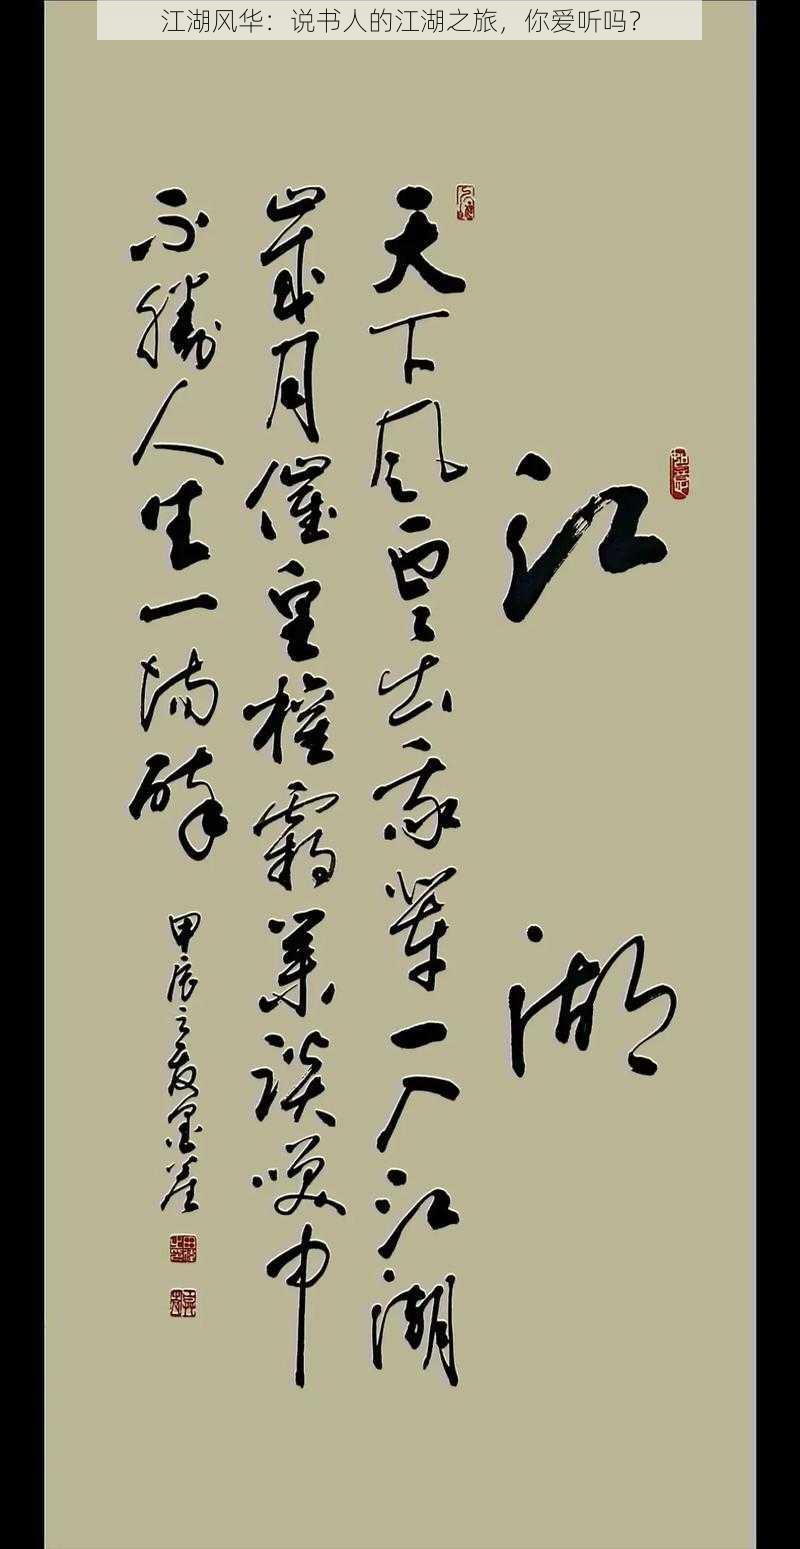 江湖风华：说书人的江湖之旅，你爱听吗？
江湖
天下風雲出我輩一入江湖
歲月催皇權霸業談笑中
不勝人生一場醉
甲辰之夏墨